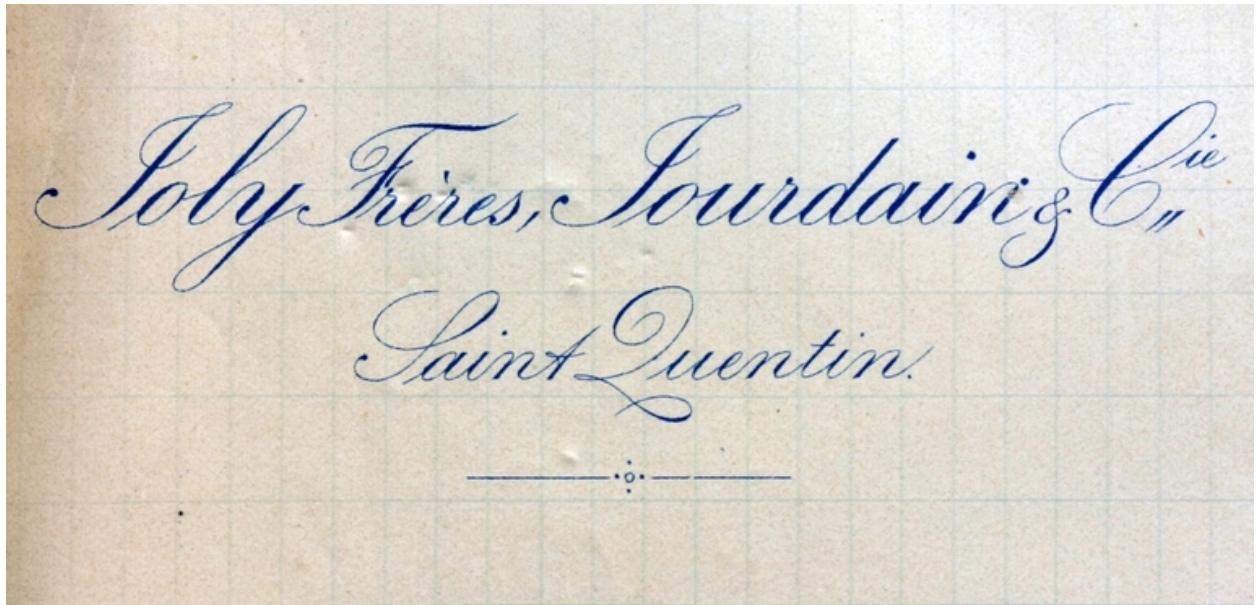 Joly Frères, Jourdain & Cie
Saint Quentin.